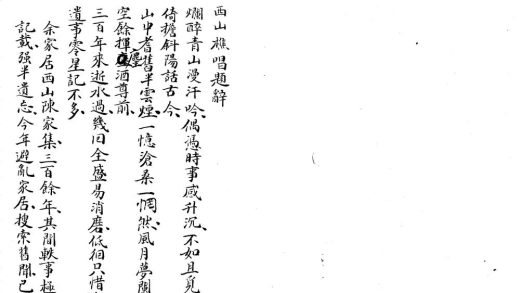 西山樵唱題辭
爛醉青山漫汗吟偶憑時事感升沉不如且覓
倚擔斜陽話古今
山中耆舊半雲煙一憶滄桑一惘然風月夢闌
空餘揮麈酒尊前
三百年來逝水過幾回全盛易消磨低徊只惜
遺事零星記不多
余家居西山陳家集三百餘年其間軼事極
記載强半遺忘今年避亂家居搜索舊聞已